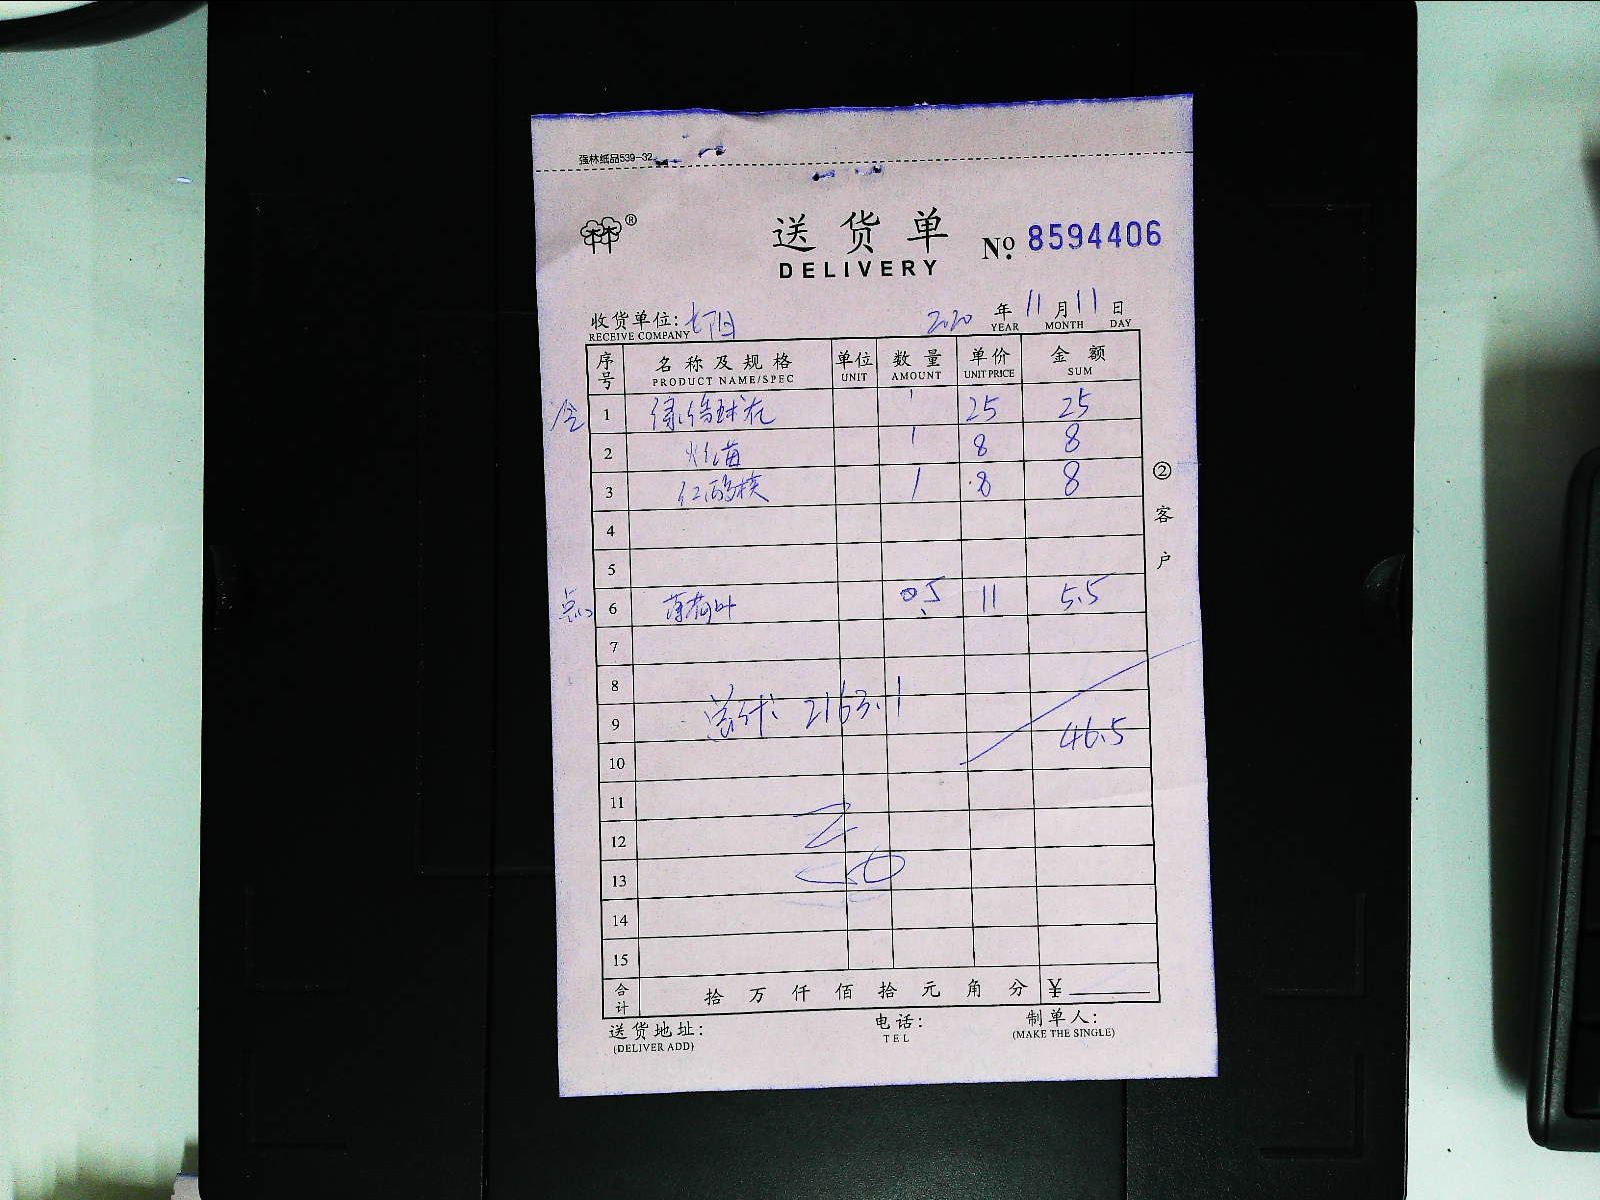 强林纸品539-32
林林®
送货单
DELIVERY
№ 8594406
收货单位:
RECEIVE COMPANY
2020 年 11 月 11 日
YEAR MONTH DAY
序号 名称及规格 单位 数量 单价 金额
PRODUCT NAME/SPEC UNIT AMOUNT UNIT PRICE SUM
1 1 25 25
2 1 8 8
3 1 8 8
4
5
点心 6 薄荷叶 0.5 11 5.5
7
8
9 总计: 2163.1
46.5
10
11
12
13
14
15
合计 拾 万 仟 佰 拾 元 角 分 ¥
送货地址: 电话: 制单人:
(DELIVER ADD) TEL (MAKE THE SINGLE)
② 客户